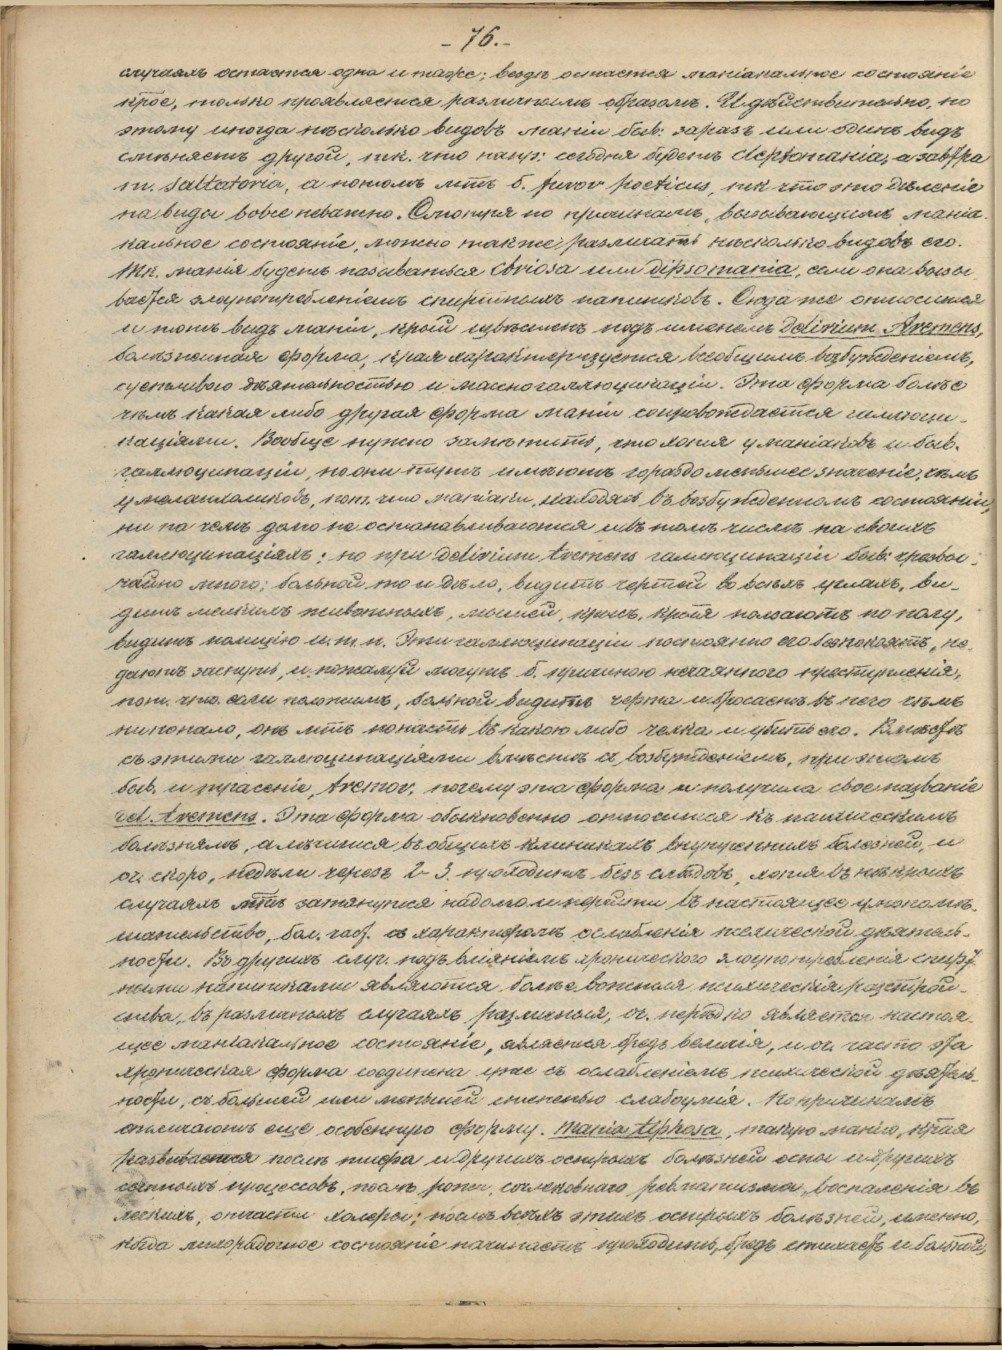 - 76. -
случаяхъ остается одна и таже; вездѣ остается маніакальное состояніе
крое, только проявляется различнымъ образомъ. И дѣйствительно, по
этому иногда нѣсколько видовъ маніи быв. заразъ или одинъ видъ
смѣняетъ другой, тк. что напр: сегодня будетъ cleptomania, а завтра
m. saltatoria, а потомъ мтъ б. furor poeticus, тк что это дѣленіе
на виды вовсе неважно. Смотря по причинамъ, вызывающимъ маніа-
кальное состояніе, можно также различать нѣсколько видовъ его.
Тк. манія будетъ называться ebriosa или dipsomania, если она вызы
вается злоупотребленіемъ спиртныхъ напитковъ. Сюда же относится
и тотъ видъ маніи, крый извѣстенъ подъ именемъ delirium tremens,
болѣзненная форма, края характеризуется всеобщимъ возбужденіемъ,
суетливою дѣятельностью и массою галлюцинацій. Эта форма болѣе
чѣмъ какая либо другая форма маніи сопровождается галлюци-
націями. Вообще нужно замѣтить, что хотя у маніаковъ и быв.
галлюцинаціи, но они тутъ имѣютъ гораздо меньшее значеніе, чѣмъ
у меланхоликовъ, пот. что маніаки, находясь въ возбужденномъ состояніи,
ни на чемъ долго не останавливаются и въ томъ числѣ на своихъ
галлюцинаціяхъ; но при delirium tremens галлюцинаціи быв. чрезвы-
чайно много; больной то и дѣло, видитъ чертей во всѣхъ углахъ, ви-
дитъ мелкихъ животныхъ, мышей, крысъ, крыя ползаютъ по полу,
видитъ полицію и.т.п. Эти галлюцинаціи постоянно его безпокоятъ, не
даютъ заснуть, и пожалуй могутъ б. причиною нечаяннаго преступленія,
пот. что если положимъ, больной видитъ черта и бросаетъ въ него чѣмъ
нипопало, онъ мтъ попасть въ какого либо челка и убить его. Вмѣстѣ
съ этими галлюцинаціями вмѣстѣ съ возбужденіемъ, при этомъ
быв. и трясеніе, tremor, почему эта форма и получила свое названіе
del. tremens. Эта форма обыкновенно относится къ психическимъ
болѣзнямъ, а лѣчится въ общихъ клиникахъ внутреннихъ болезней, и
оч. скоро, недѣли черезъ 2-3 проходитъ безъ слѣдовъ, хотя въ нѣкрыхъ
случаяхъ мтъ затянутся надолго и перейти въ настоящее умопомѣ-
шательство, бол. част. съ характеромъ ослабленія психической дѣятель-
ности. Въ другихъ случ. подъ вліяніемъ хроническаго злоупотребленія спирт-
ными напитками являются болѣе важныя психическія разстрой-
ства, въ различныхъ случаяхъ различныя, оч. нерѣдко является настоя-
щее маніакальное состояніе, является бредъ величія, и оч. часто эта
хроническая форма соединена уже съ ослабленіемъ психической дѣятель-
ности, съ большей или меньшей степенью слабоумія. По причинамъ
отличаютъ еще особенную форму. Mania tiphosa, такую манію, края
развивается послѣ тифа и другихъ острыхъ болѣзней оспы и другихъ
сыпныхъ процессовъ, послѣ рожи, сочленовнаго ревматизма, воспаленія въ
легкихъ, отчасти холеры; послѣ всѣхъ этихъ острыхъ болѣзней, именно,
когда лихорадочное состояніе начинаетъ проходить, бредъ стихаетъ и больной,